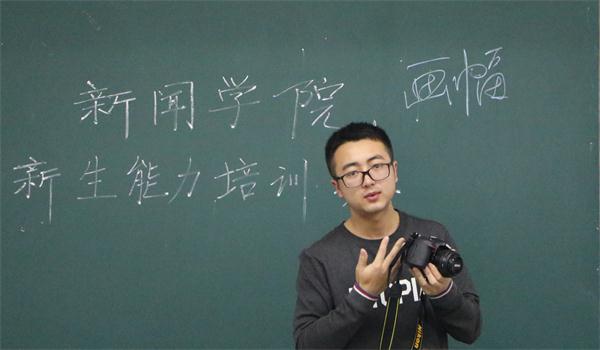 新闻学院
画幅
新生能力培训
UTOPIA
NIKON